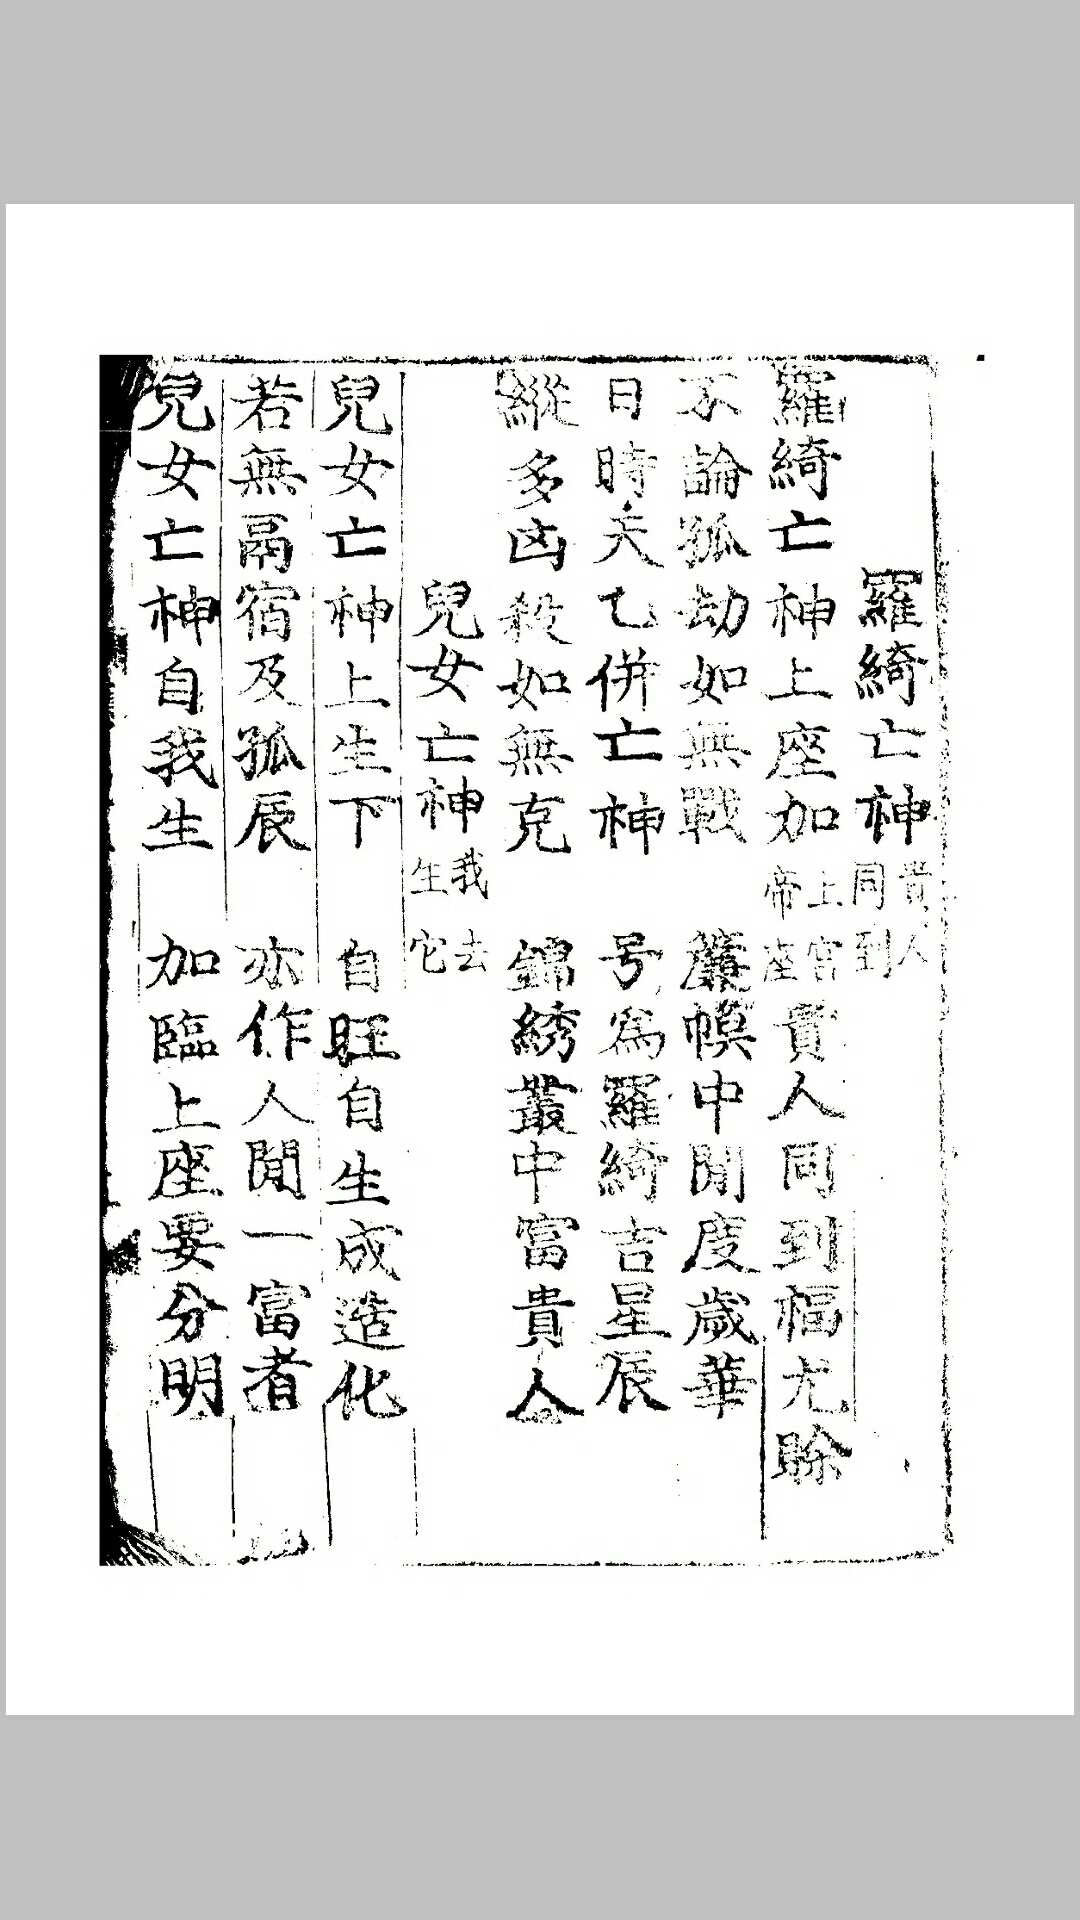 羅綺亡神貴人同到
羅綺亡神上座加上宮帝座貴人同到福尤賒
不論孤劫如無戰 簾幙中閒度歲華
日時天乙併亡神 号爲羅綺吉星辰
縱多凶殺如無克 錦綉叢中富貴人
兒女亡神我去生它
兒女亡神上生下 自旺自生成造化
若無鬲宿及孤辰 亦作人閒一富者
兒女亡神自我生 加臨上座要分明